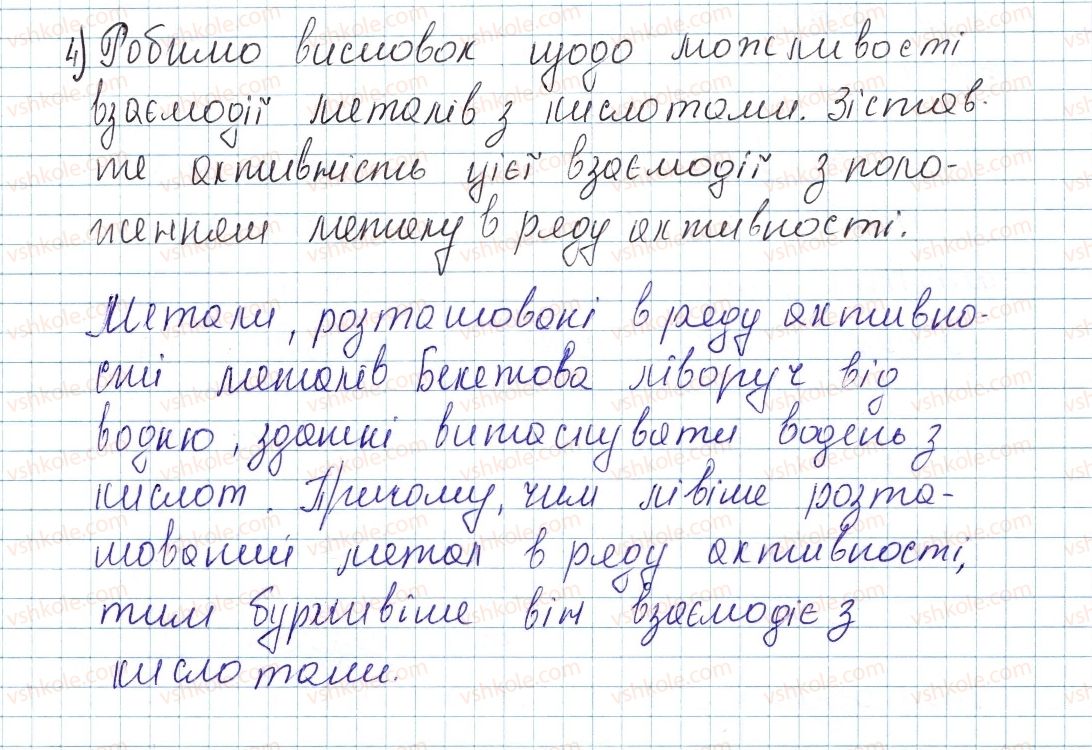 4) Робимо висновок щодо можливості
взаємодії металів з кислотами. Зістав-
те активність цієї взаємодії з поло-
женням металу в ряду активності.
Метали, розташовані в ряду активно-
сті металів Бекетова ліворуч від
водню, здатні витаснувати водень з
кислот. Причому, чим лівіше розта-
шований метал в ряду активності,
тим бурхливіше він взаємодіє з
кислотами.